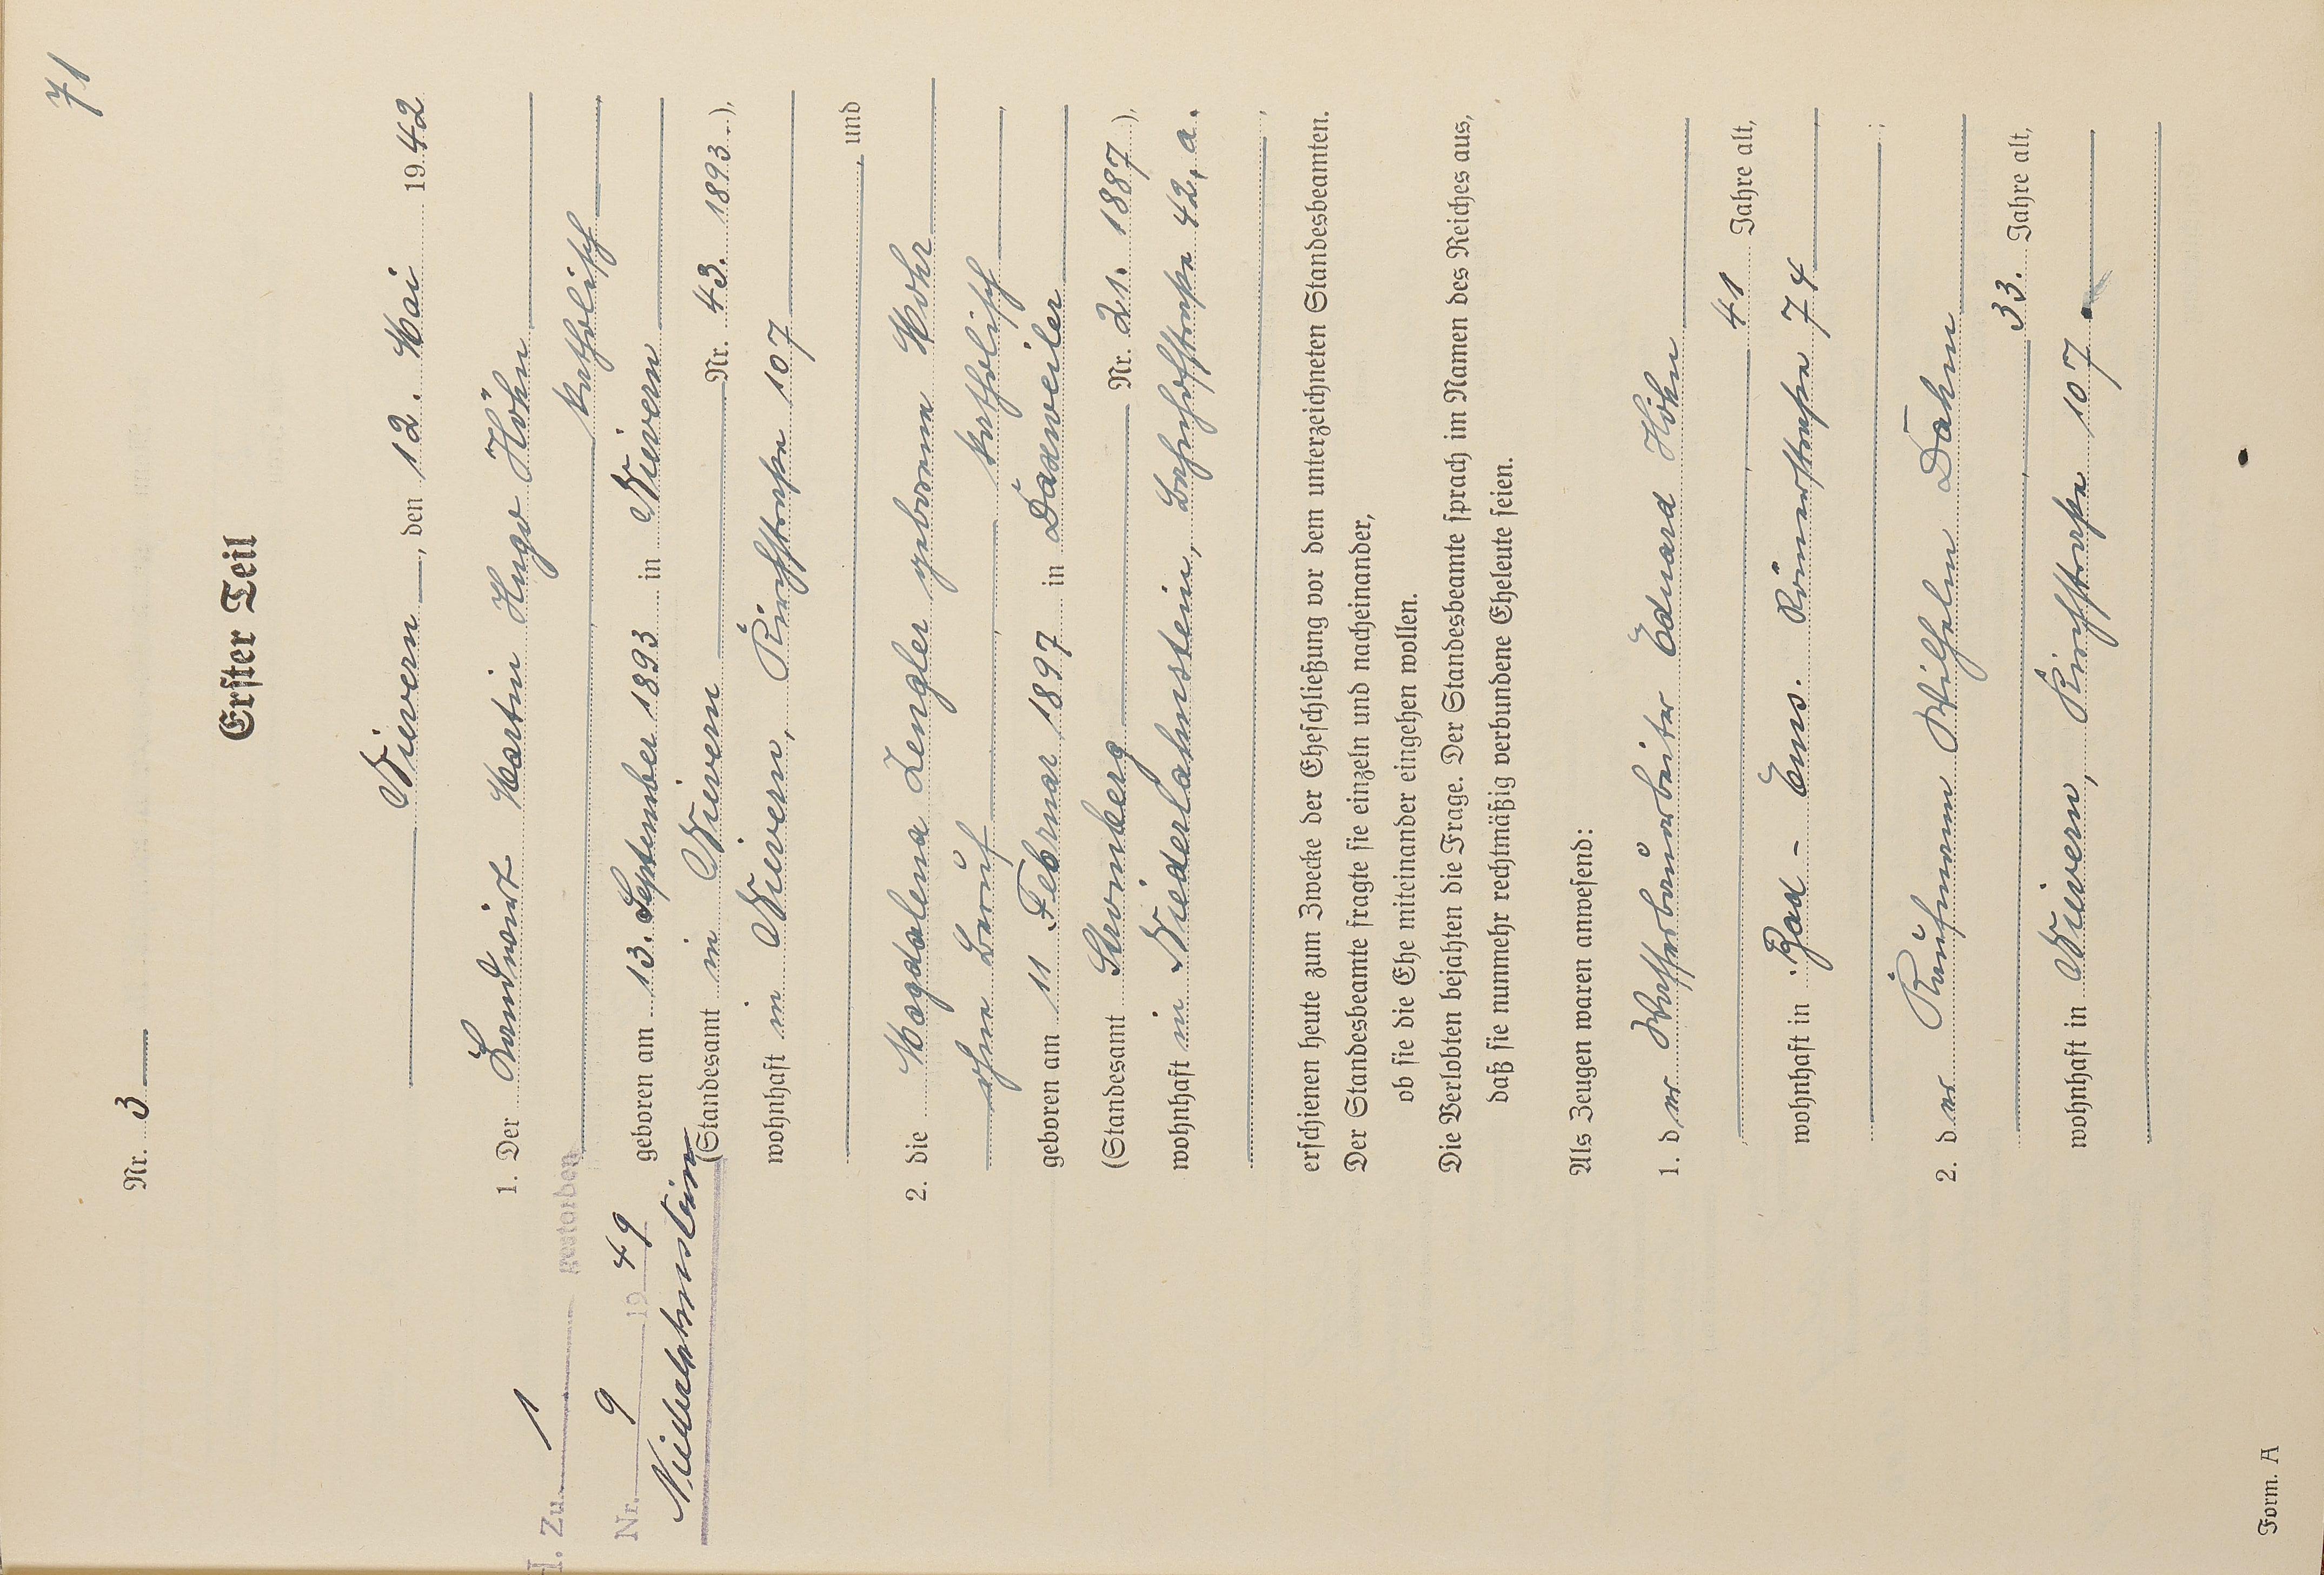 71
Nr. 3
Erster Teil
Nievern, den 12. Mai 1942
1. Der Landwirt Martin Hugo Höhn
katholisch
geboren am 13. September 1893 in Nievern
(Standesamt in Nievern Nr. 43. 1893.),
wohnhaft in Nievern, Kirchstraße 107
, und
2. die Magdalena Lengler geborene Mohr
ohne Beruf, katholisch
geboren am 11. Februar 1897 in Daxweiler
(Standesamt Stromberg Nr. 21. 1887),
wohnhaft in Niederlahnstein, Bahnhofstraße 42, a.
,
erschienen heute zum Zwecke der Eheschließung vor dem unterzeichneten Standesbeamten.
Der Standesbeamte fragte sie einzeln und nacheinander,
ob sie die Ehe miteinander eingehen wollen.
Die Verlobten bejahten die Frage. Der Standesbeamte sprach im Namen des Reiches aus,
daß sie nunmehr rechtmäßig verbundene Eheleute seien.
Als Zeugen waren anwesend:
1. der Wasserbauarbeiter Eduard Höhn
, 41 Jahre alt,
wohnhaft in Bad-Ems. Römerstraße 74
;
2. der Kaufmann Wilhelm Dahm
, 33. Jahre alt,
wohnhaft in Nievern, Kirchstraße 107.
H. Zu 1 gestorben
Nr. 9 1949
Niederlahnstein
Form. A